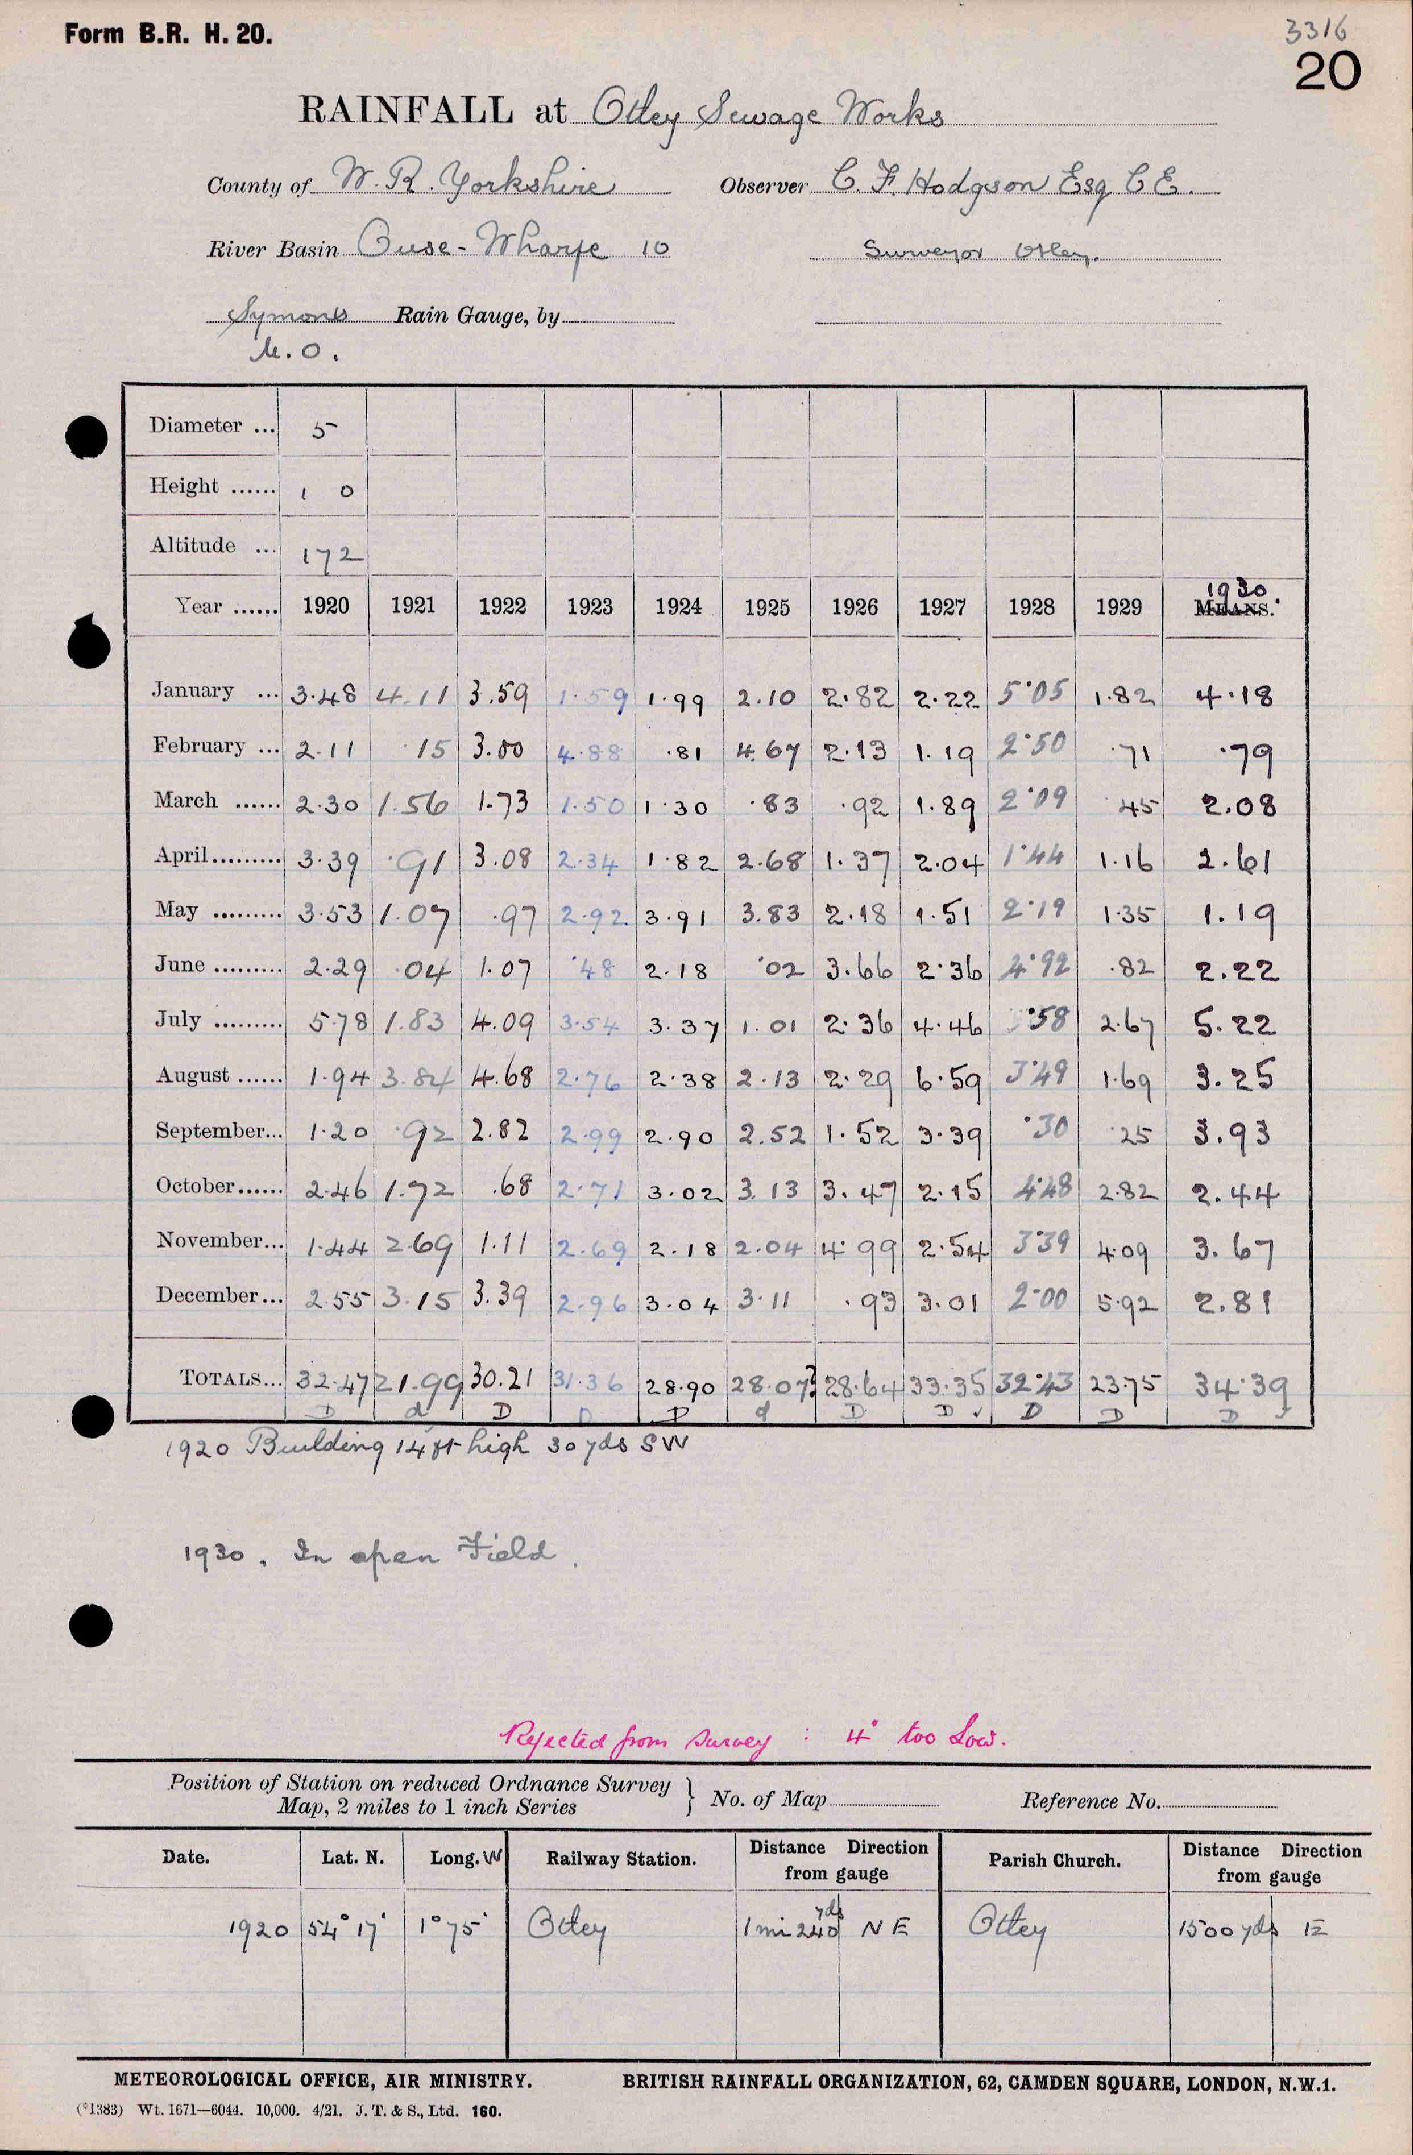 Form B.R. H. 20.
3316
20
RAINFALL at Otley Sewage Works
County of W. R. Yorkshire Observer C. F. Hodgson Esq C E.
River Basin Ouse - Wharfe 10 Surveyor Otley.
Symons Rain Gauge, by
M.O.
Diameter ... 5
Height ...... 1 0
Altitude ... 172
1930.
Year ...... 1920 1921 1922 1923 1924 1925 1926 1927 1928 1929 MEANS.
January ... 3.48 4.11 3.59 1.59 1.99 2.10 2.82 2.22 5.05 1.82 4.18
February ... 2.11 .15 3.00 4.88 .81 4.67 2.13 1.19 2.50 .71 .79
March ...... 2.30 1.56 1.73 1.50 1.30 .83 .92 1.89 2.09 .45 2.08
April......... 3.39 .91 3.08 2.34 1.82 2.68 1.37 2.04 1.44 1.16 2.61
May ......... 3.53 1.07 .97 2.92 3.91 3.83 2.18 1.51 2.19 1.35 1.19
June ......... 2.29 .04 1.07 .48 2.18 .02 3.66 2.36 4.92 .82 2.22
July ......... 5.78 1.83 4.09 3.54 3.37 1.01 2.36 4.46 .58 2.67 5.22
August ...... 1.94 3.84 4.68 2.76 2.38 2.13 2.29 6.59 3.49 1.69 3.25
September... 1.20 .92 2.82 2.99 2.90 2.52 1.52 3.39 .30 .25 3.93
October...... 2.46 1.72 .68 2.71 3.02 3.13 3.47 2.15 4.48 2.82 2.44
November... 1.44 2.69 1.11 2.69 2.18 2.04 4.99 2.54 3.39 4.09 3.67
December... 2.55 3.15 3.39 2.96 3.04 3.11 .93 3.01 2.00 5.92 2.81
TOTALS... 32.47 21.99 30.21 31.36 28.90 28.07? 28.64 33.35 32.43 23.75 34.39
D d D D D d D D ✓ D D D ✓
1920 Building 14 ft high 30 yds SW
1930. In open Field.
Rejected from survey : 4" too Low.
Position of Station on reduced Ordnance Survey } No. of Map Reference No.
Map, 2 miles to 1 inch Series
Date. Lat. N. Long. W Railway Station. Distance Direction from gauge Parish Church. Distance Direction from gauge
1920 54° 17' 1° 75' Otley 1 mi 240 yds NE Otley 1500 yds E
METEOROLOGICAL OFFICE, AIR MINISTRY. BRITISH RAINFALL ORGANIZATION, 62, CAMDEN SQUARE, LONDON, N.W.1.
(*1383) Wt. 1671—6044. 10,000. 4/21. J. T. & S., Ltd. 160.